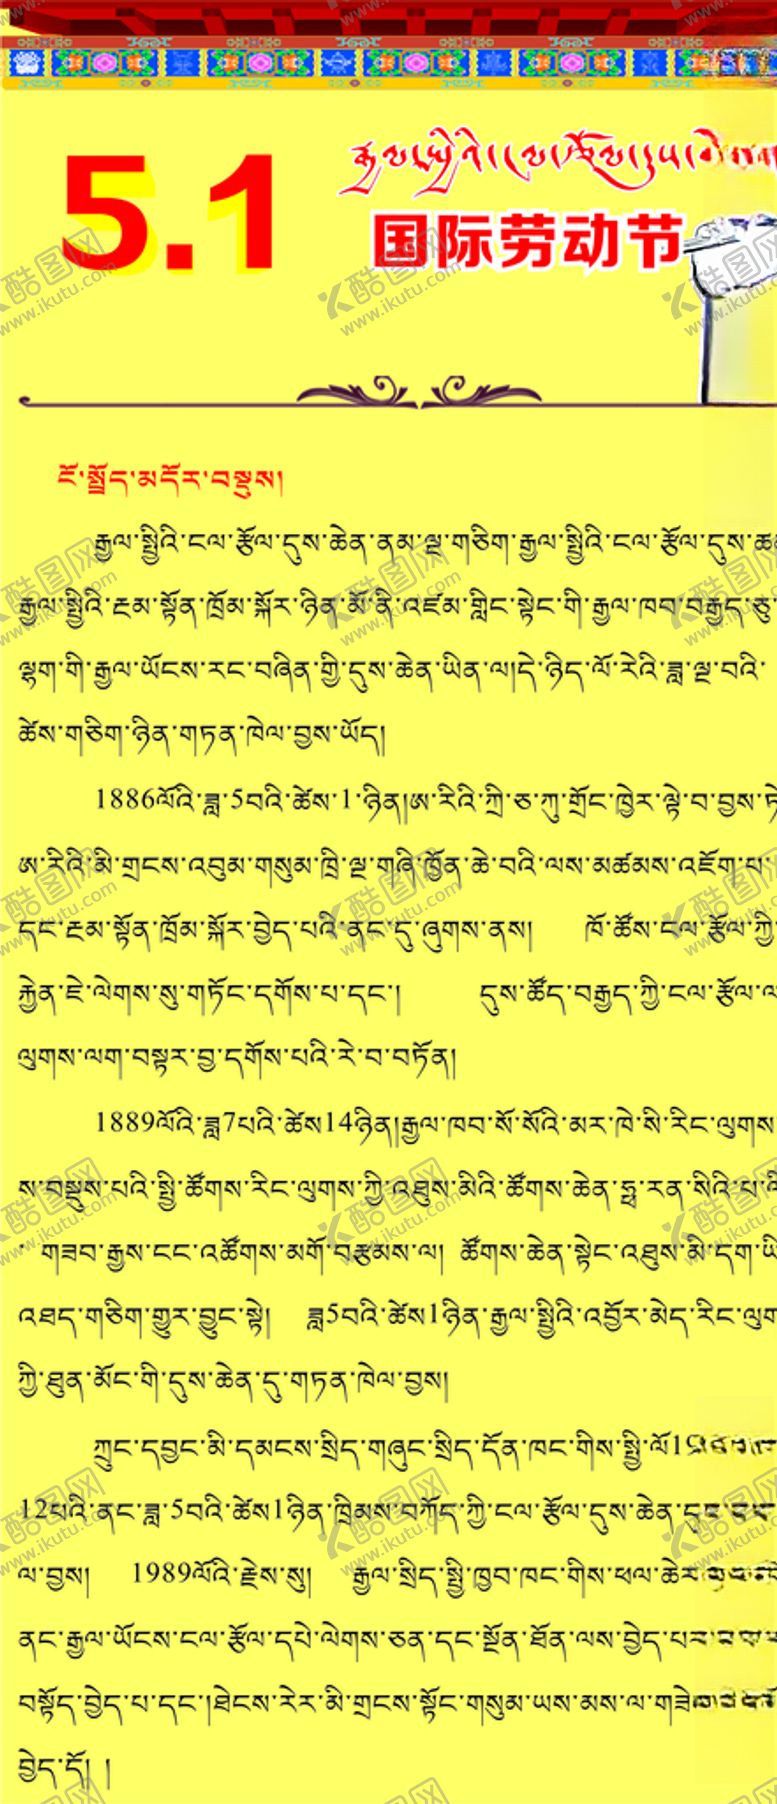 5.1
རྒྱལ་སྤྱིའི་ངལ་རྩོལ་དུས་
国际劳动节
ངོ་སྤྲོད་མདོར་བསྡུས།
རྒྱལ་སྤྱིའི་ངལ་རྩོལ་དུས་ཆེན་ནམ་ལྔ་གཅིག་རྒྱལ་སྤྱིའི་ངལ་རྩོལ་དུས་
རྒྱལ་སྤྱིའི་རྔམ་སྟོན་ཁྲོམ་སྐོར་ཉིན་མོ་ནི་འཛམ་གླིང་སྟེང་གི་རྒྱལ་ཁབ་བརྒྱད་ཅུ་
ལྷག་གི་རྒྱལ་ཡོངས་རང་བཞིན་གྱི་དུས་ཆེན་ཡིན་ལ།དེ་ཉིད་ལོ་རེའི་ཟླ་ལྔ་བའི་
ཚེས་གཅིག་ཉིན་གཏན་ཁེལ་བྱས་ཡོད།
1886ལོའི་ཟླ་5བའི་ཚེས་1་ཉིན།ཨ་རིའི་ཀྲི་ཅ་ཀུ་གྲོང་ཁྱེར་ལྟེ་བ་བྱས་ཏེ
ཨ་རིའི་མི་གྲངས་འབུམ་གསུམ་ཁྲི་ལྔ་གཞི་ཁྱོན་ཆེ་བའི་ལས་མཚམས་འཇོག་པ་
དང་རྔམ་སྟོན་ཁྲོམ་སྐོར་བྱེད་པའི་ནང་དུ་ཞུགས་ནས། ཁོ་ཚོས་ངལ་རྩོལ་ཀྱི་
རྐྱེན་ཇེ་ལེགས་སུ་གཏོང་དགོས་པ་དང་། དུས་ཚོད་བརྒྱད་ཀྱི་ངལ་རྩོལ་ལ
ལུགས་ལག་བསྟར་བྱ་དགོས་པའི་རེ་བ་བཏོན།
1889ལོའི་ཟླ7པའི་ཚེས14ཉིན།རྒྱལ་ཁབ་སོ་སོའི་མར་ཁེ་སི་རིང་ལུགས་
ས་བསྡུས་པའི་སྤྱི་ཚོགས་རིང་ལུགས་ཀྱི་འཐུས་མིའི་ཚོགས་ཆེན་ཧྥ་རན་སིའི་པ་ལི
་གཟབ་རྒྱས་ངང་འཚོགས་མགོ་བརྩམས་ལ། ཚོགས་ཆེན་སྟེང་འཐུས་མི་དག་ཡི
འཐད་གཅིག་གྱུར་བྱུང་སྟེ། ཟླ5བའི་ཚེས1ཉིན་རྒྱལ་སྤྱིའི་འབྱོར་མེད་རིང་ལུག
ཀྱི་ཐུན་མོང་གི་དུས་ཆེན་དུ་གཏན་ཁེལ་བྱས།
ཀྲུང་དབྱང་མི་དམངས་སྲིད་གཞུང་སྲིད་དོན་ཁང་གིས་སྤྱི་ལོ19
12པའི་ནང་ཟླ་5བའི་ཚེས1ཉིན་ཁྲིམས་བཀོད་ཀྱི་ངལ་རྩོལ་དུས་ཆེན་
ལ་བྱས། 1989ལོའི་རྗེས་སུ། རྒྱལ་སྲིད་སྤྱི་ཁྱབ་ཁང་གིས་ཕལ་ཆེར་
ནང་རྒྱལ་ཡོངས་ངལ་རྩོལ་དཔེ་ལེགས་ཅན་དང་སྔོན་ཐོན་ལས་བྱེད་པར་
བསྟོད་བྱེད་པ་དང་།ཐེངས་རེར་མི་གྲངས་སྟོང་གསུམ་ཡས་མས་ལ་
བྱེད་དོ། །
酷图网
www.ikutu.com